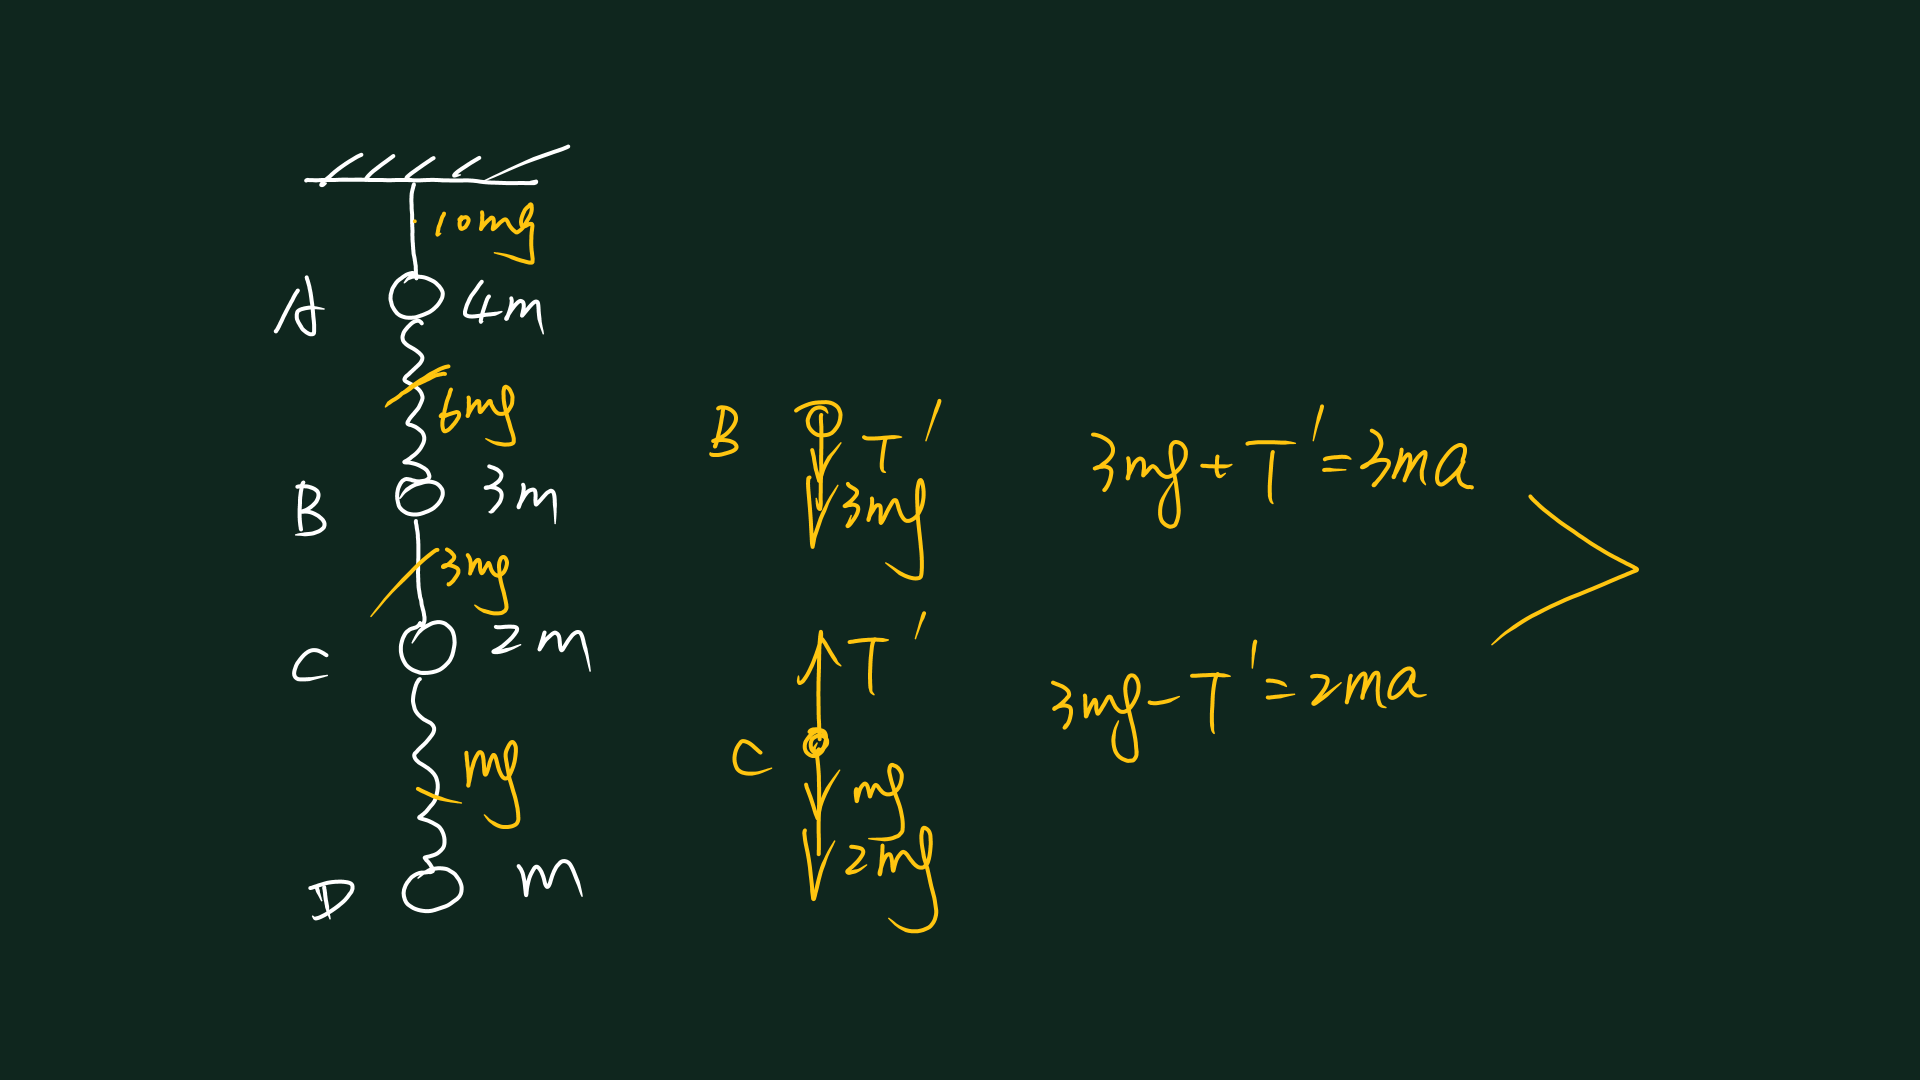 10mg
A 4m
6mg
B 3m
3mg
C 2m
mg
D m
B T'
3mg
3mg + T' = 3ma
T'
C
mg
2mg
3mg - T' = 2ma